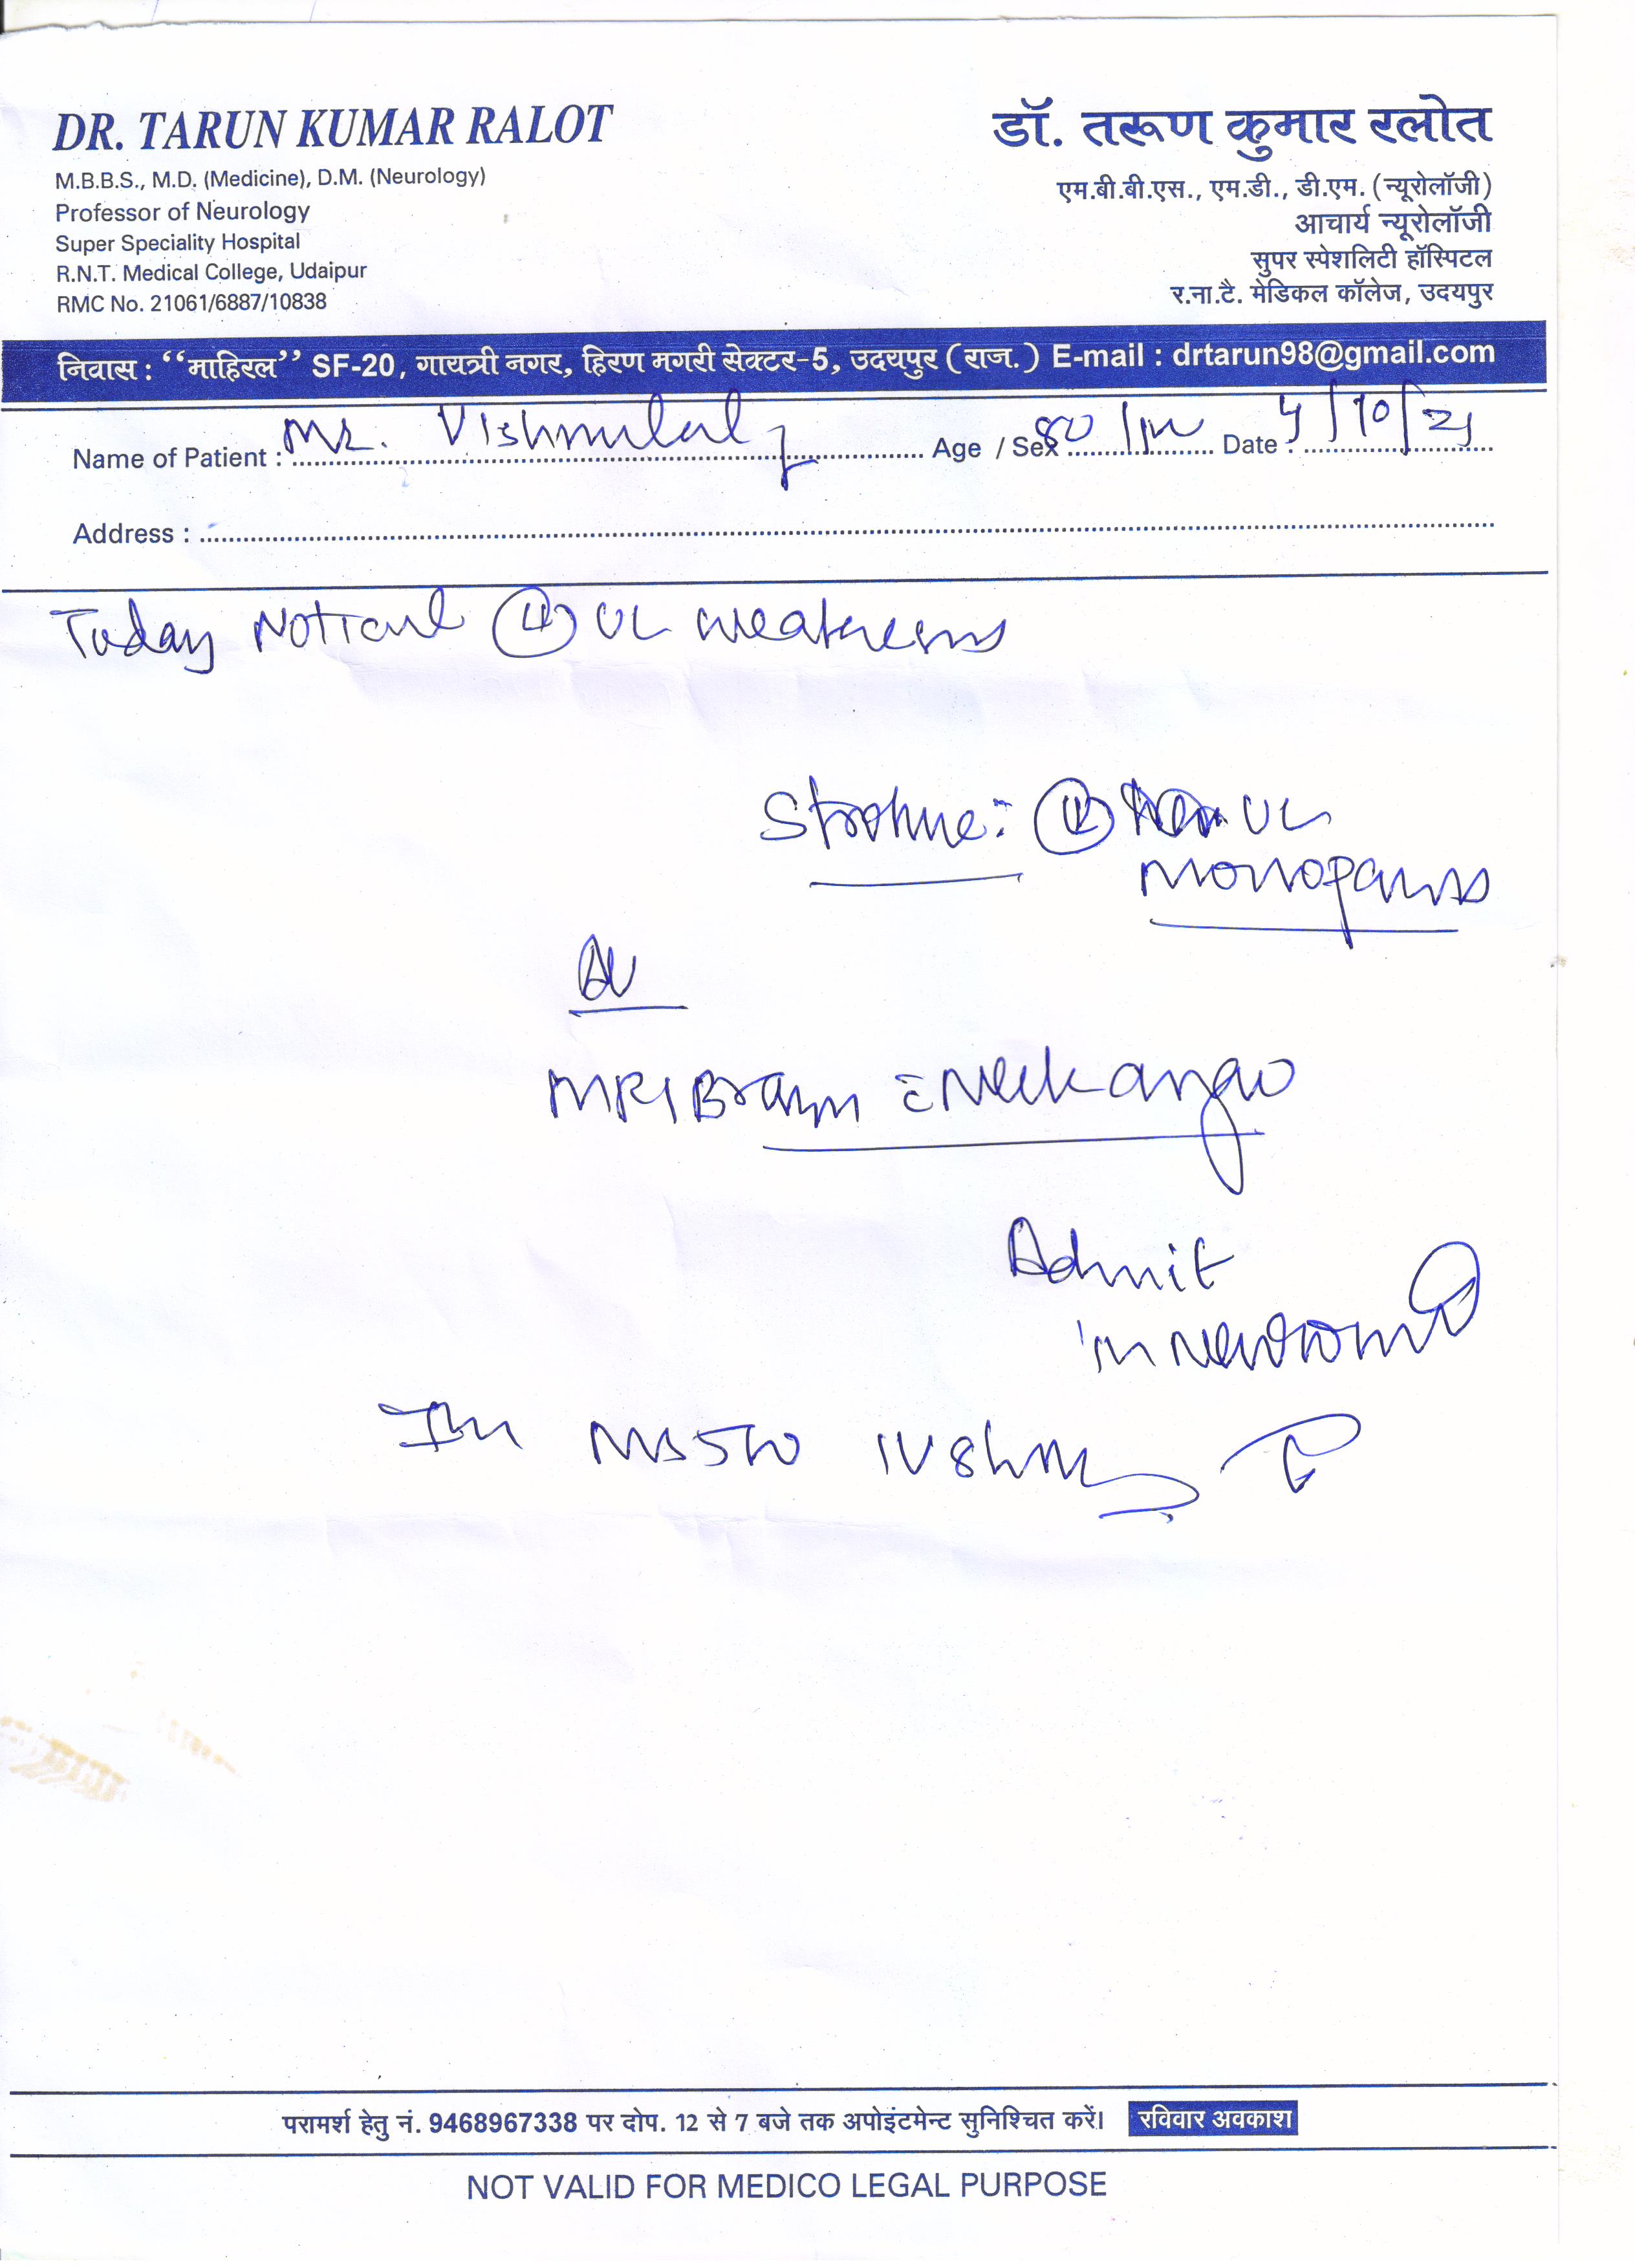 DR. TARUN KUMAR RALOT
M.B.B.S., M.D. (Medicine), D.M. (Neurology)
Professor of Neurology
Super Speciality Hospital
R.N.T. Medical College, Udaipur
RMC No. 21061/6887/10838
डॉ. तरूण कुमार रलोत
एम.बी.बी.एस., एम.डी., डी.एम. (न्यूरोलॉजी)
आचार्य न्यूरोलॉजी
सुपर स्पेशलिटी हॉस्पिटल
र.ना.टै. मेडिकल कॉलेज, उदयपुर
निवास : “माहिरल” SF-20, गायत्री नगर, हिरण मगरी सेक्टर-5, उदयपुर (राज.) E-mail : drtarun98@gmail.com
Name of Patient : Mr. Vishnulal Age / Sex 80/m Date : /10/21
Address :
Today Noticed UL weakness
Stroke: UL
monoparesis
MRI Brain c Neck angio
Admit
in
NS 500 IV 8hrly
परामर्श हेतु नं. 9468967338 पर दोप. 12 से 7 बजे तक अपोइंटमेन्ट सुनिश्चित करें। रविवार अवकाश
NOT VALID FOR MEDICO LEGAL PURPOSE